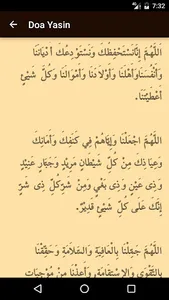 7:32
Doa Yasin
اَللّٰهُمَّ إِنَّانَسْتَحْفِظُكَ وَنَسْتَوْدِعُكَ أَدْيَانَنَا
وَأَنْفُسَنَاوَأَهْلَنَا وَأَوْلَادَنَا وَأَمْوَالَنَا وَكُلَّ شَيْئٍ
أَعْطَيْتَنَا.
اَللّٰهُمَّ اجْعَلْنَا وَإِيَّاهُمْ فِي كَنَفِكَ وَأَمَانِكَ
وَعِيَاذِكَ مِنْ كُلِّ شَيْطَانٍ مَرِيْدٍ وَجَبَّارٍ عَنِيْدٍ
وَذِى عَيْنٍ وَذِى بَغْيٍ وَمِنْ شَرِّكُلِّ ذِى شَرٍّ
إِنَّكَ عَلَى كُلِّ شَيْئٍ قَدِيْرٌ.
اَللّٰهُمَّ جَمِّلْنَا بِالْعَافِيَةِ وَالسَّلَامَةِ وَحَقِّقْنَا
بِالتَّقْوَى وَالْاِسْتِقَامَةِ وَأَعِذْنَا مِنْ مُوْجِبَاتِ